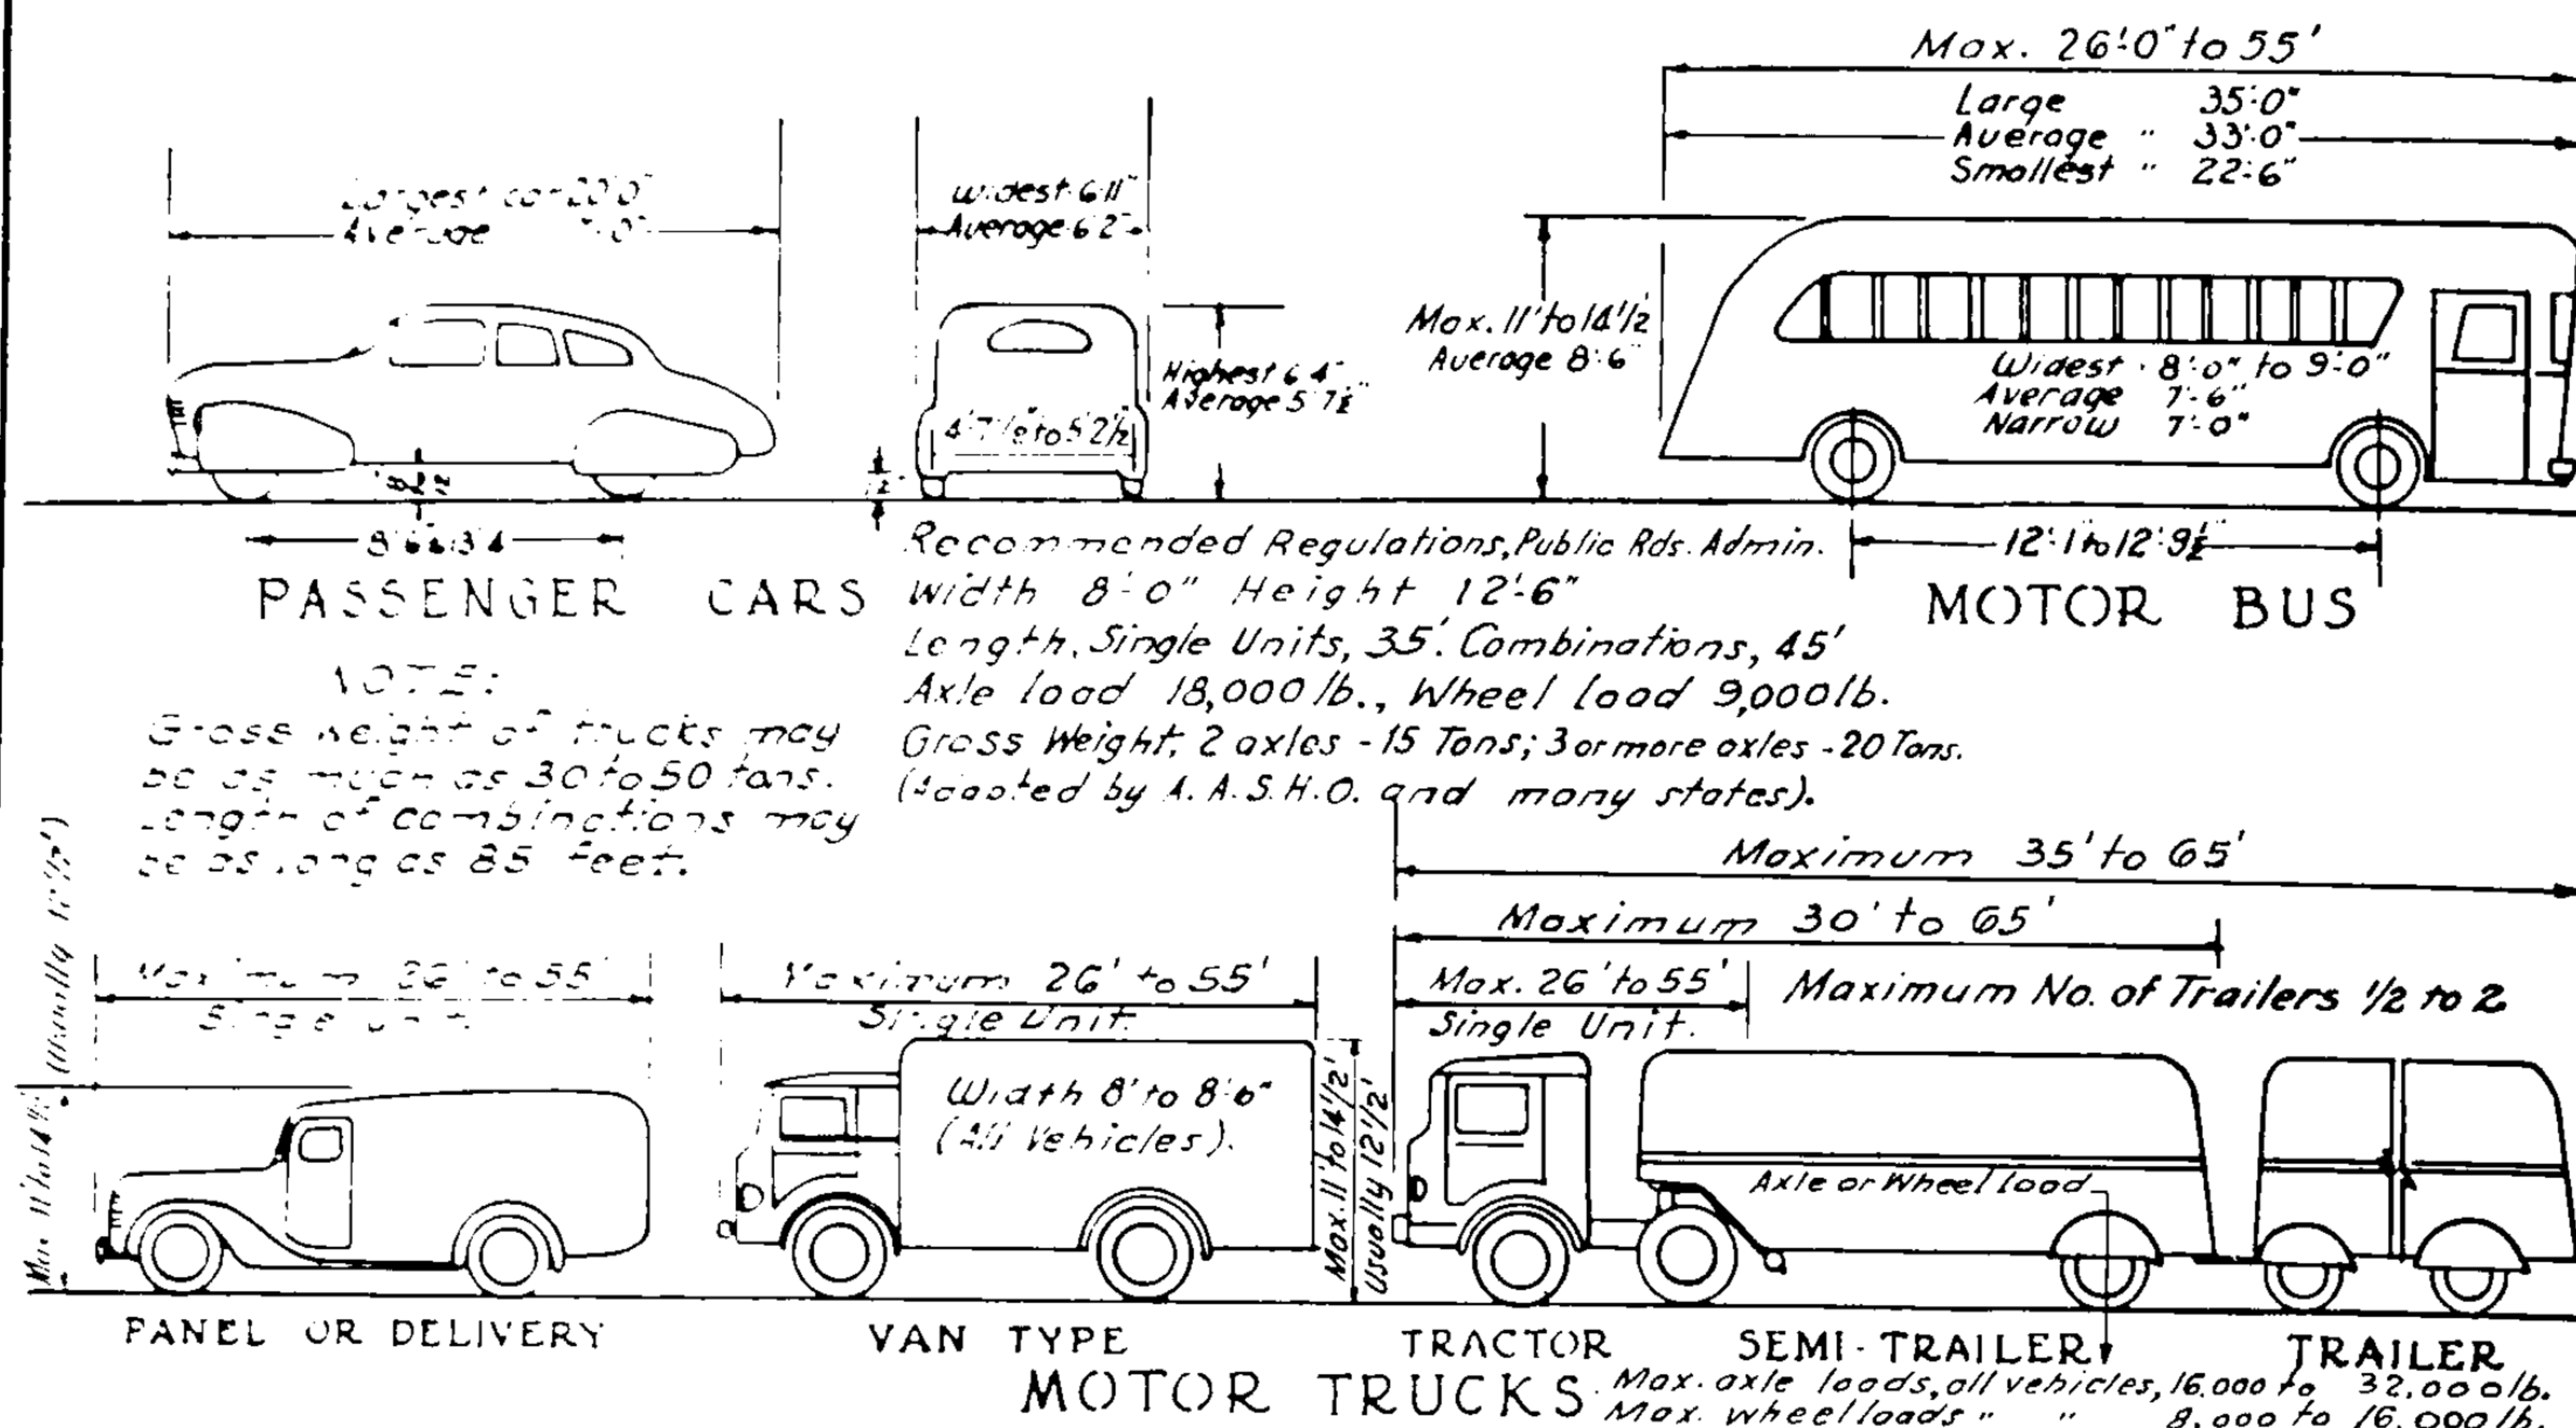 Max. 26'-0" to 55'
Large 35'-0"
Average " 33'-0"
Smallest " 22'-6"
Largest car 20'0"
Average
Widest 6'11"
Average 6'2"
Highest 6'4"
Average 5'7½"
4'-7½" to 5'2½"
Max. 11' to 14½'
Average 8'-6"
Widest 8'-0" to 9'-0"
Average 7'-6"
Narrow 7'-0"
12'-1" to 12'-9½"
PASSENGER CARS
MOTOR BUS
Recommended Regulations, Public Rds. Admin.
Width 8'-0" Height 12'-6"
Length, Single Units, 35'. Combinations, 45'
Axle load 18,000 lb., Wheel load 9,000 lb.
Gross Weight, 2 axles - 15 Tons; 3 or more axles - 20 Tons.
(Adopted by A.A.S.H.O. and many states).
NOTE:
Gross weight of trucks may
be as much as 30 to 50 tons.
Length of combinations may
be as long as 85 feet.
Maximum 35' to 65'
Maximum 30' to 65'
Maximum 26' to 55'
Single Unit.
Maximum 26' to 55'
Single Unit.
Max. 26' to 55'
Single Unit.
Maximum No. of Trailers 1/2 to 2
Max. 11' to 14½'
(Usually 12½')
Width 8' to 8'-6"
(All Vehicles).
Max. 11' to 14½'
Usually 12½'
Axle or Wheel load
PANEL OR DELIVERY
VAN TYPE
TRACTOR
SEMI-TRAILER
TRAILER
MOTOR TRUCKS
Max. axle loads, all vehicles, 16,000 to 32,000 lb.
Max. wheel loads " " 8,000 to 16,000 lb.